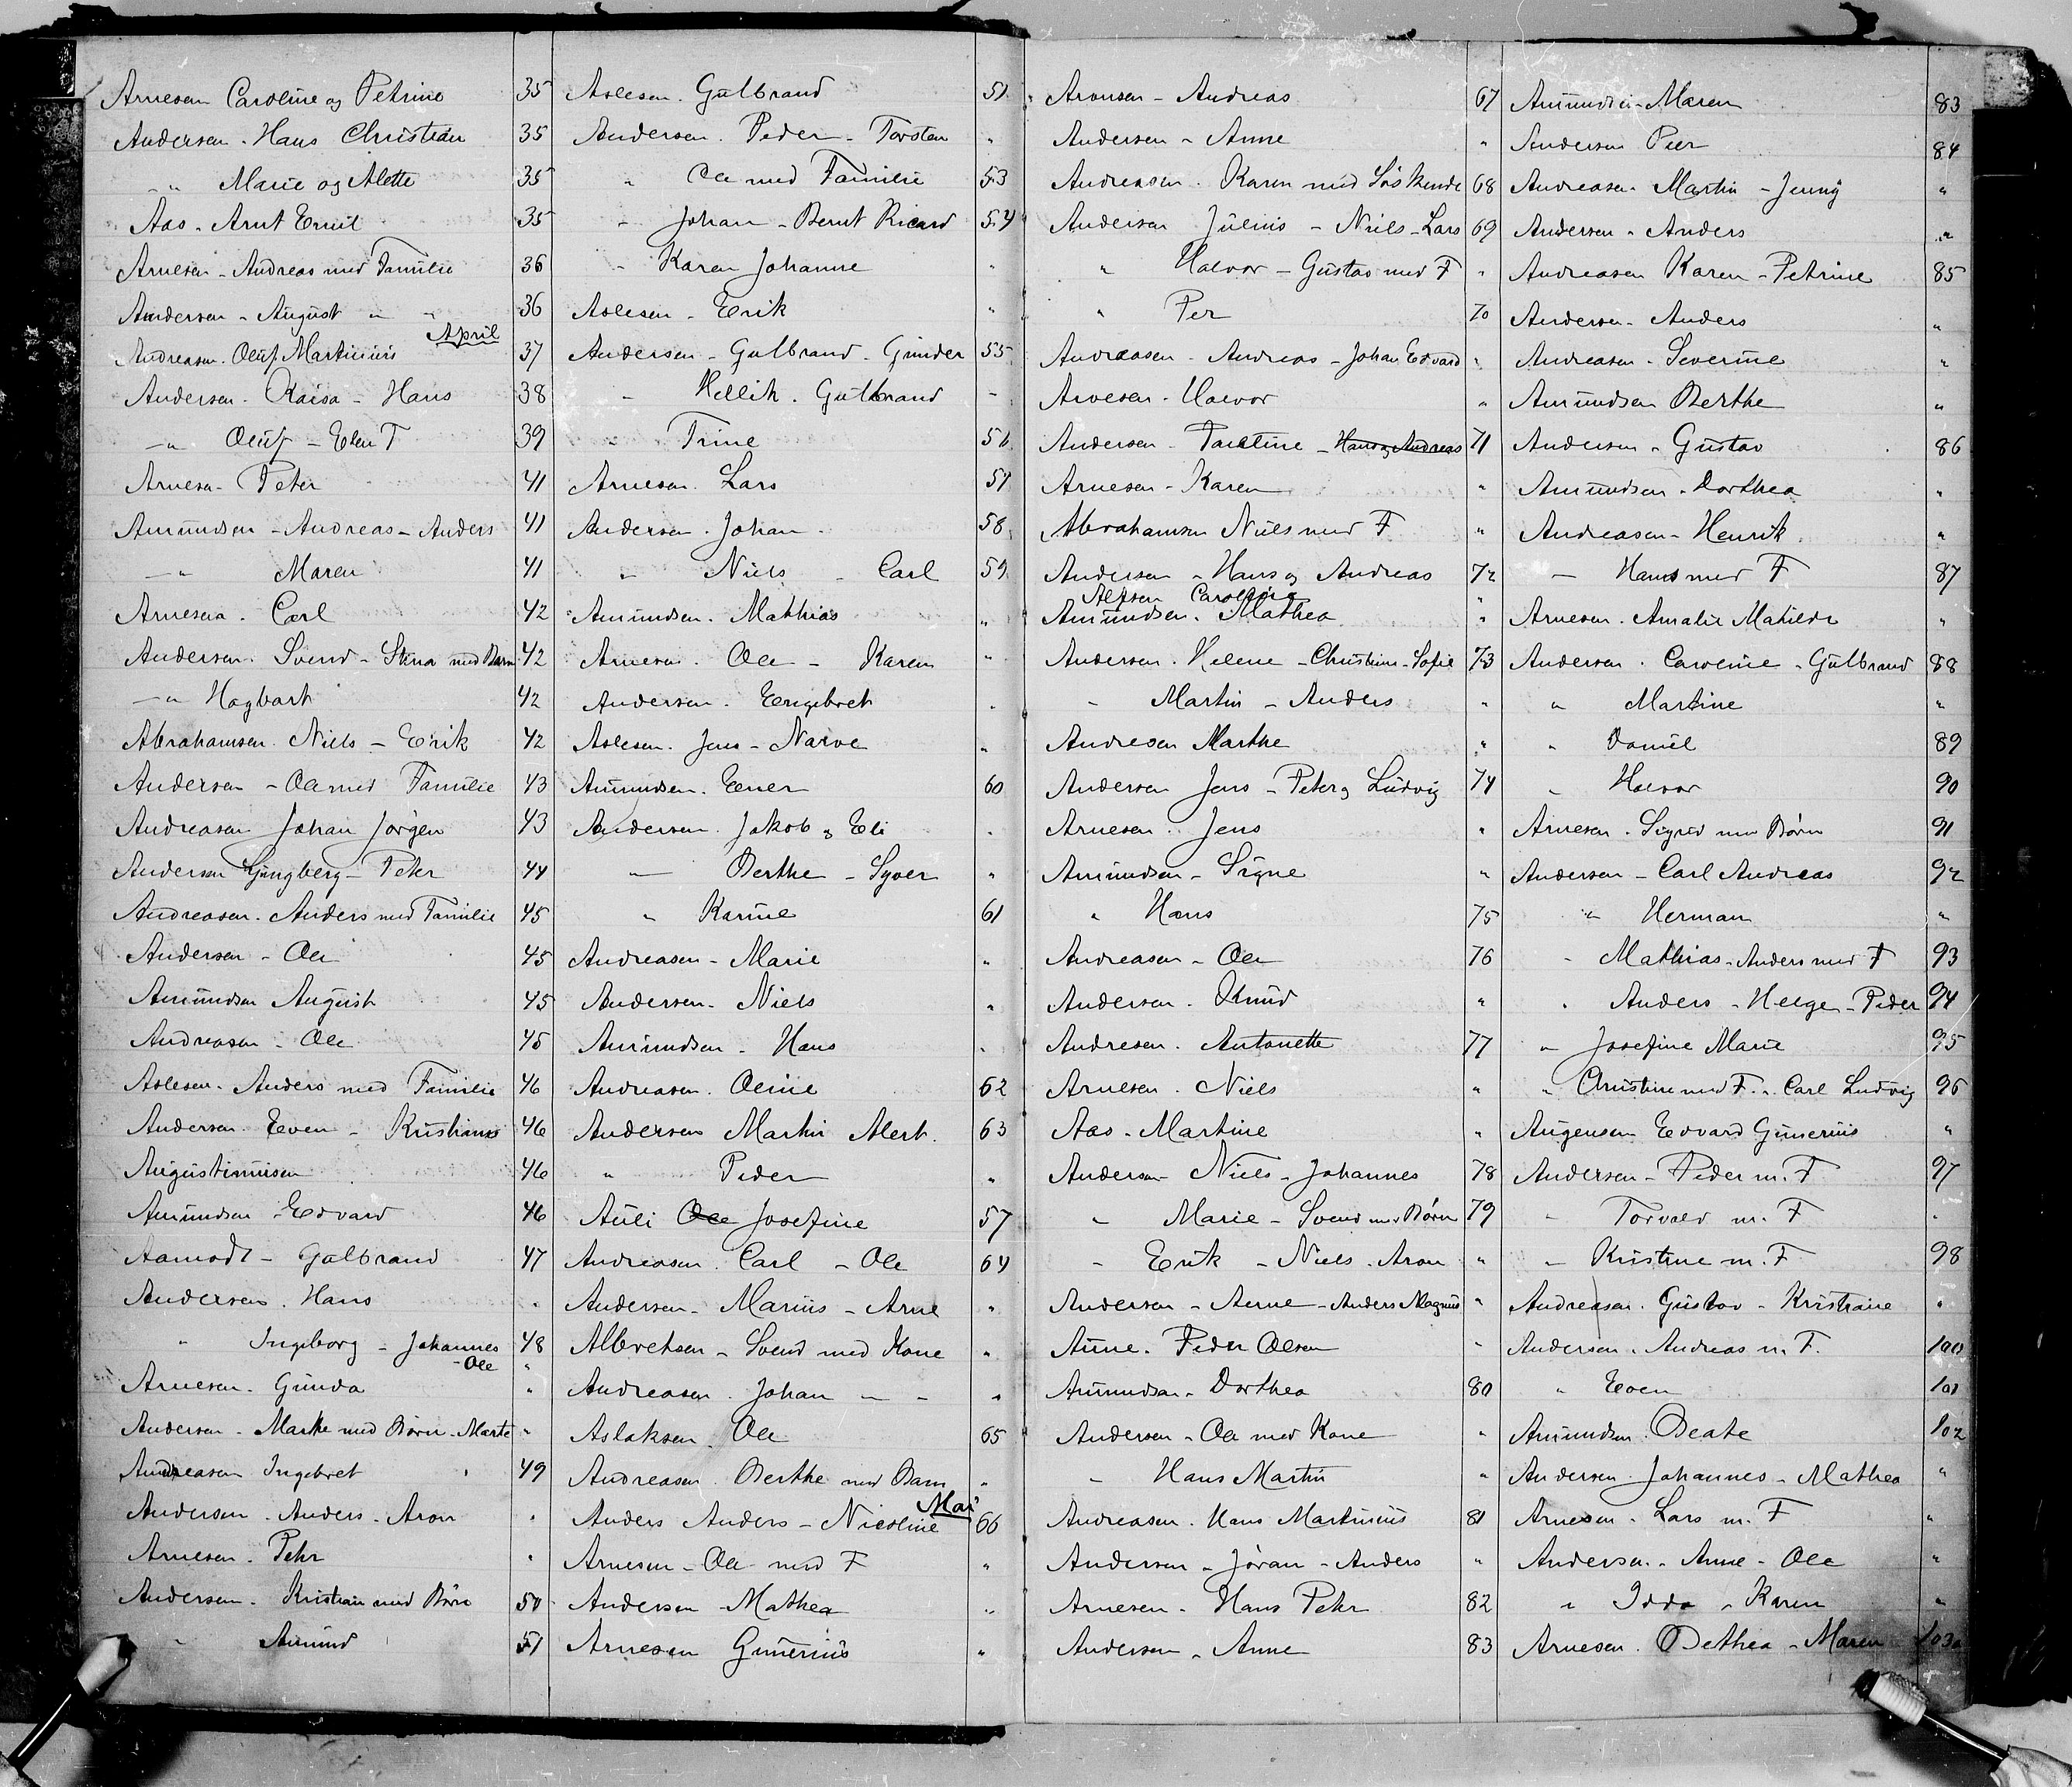 Arnesen Caroline og Petrine 35
Andersen - Hans Christian 35
-"- Marie og Alette 35
Aas - Arnt Emil 35
Arnesen - Andreas med Familie 36
Andersen - August " " 36
April
Andreasen. Oluf Martinius 37
Andersen - Kaisa - Hans 38
-"- Oluf - Elen T 39
Arnesen - Peter 41
Amundsen - Andreas - Anders 41
-"- Maren 41
Arnesen. Carl 42
Andersen. Svend - Stina med Barn 42
-"- Hagbart 42
Abrahamsen. Niels - Erik 42
Andersen - Ole med Familie 43
Andreasen Johan Jørgen 43
Andersen Ljungberg - Peter 44
Andreasen. Anders med Familie 45
Andersen - Ole 45
Amundsen August 45
Andreasen - Ole 45
Aslesen - Anders med Familie 46
Andersen. Even - Kristians 46
Augustinusen 46
Amundsen - Edvard 46
Aamodt - Gulbrand 47
Andersen. Hans "
" Ingeborg - Johannes 48
- Ole "
Arnesen. Gunda "
Andersen - Marthe med Børn - Marte "
Andreasen Ingebret 49
Andersen - Anders - Aron "
Arnesen. Petr "
Andersen. Kristian med Børn 50
" Amund 51
Aslesen. Gulbrand 51
Andersen. Peder - Torsten "
" Ole med Familie 53
- Johan - Bernt Ricard 54
- Karen Johanne "
Aslesen - Erik "
Andersen - Gulbrand - Gunder 55
- Hellik. Gulbrand -
" Trine 56
Arnesen. Lars 57
Andersen. Johan 58
" Niels - Carl 59
Amundsen. Mathias "
Arnesen. Ole - Karen "
Andersen. Engebret "
Aslesen. Jens - Narve "
Amundsen. Ener 60
Andersen. Jakob og Eli "
-"- Berthe - Syver "
" Karine 61
Andreasen - Marie "
Andersen - Niels "
Amundsen - Hans "
Andreasen. Oline 62
Andersen Martin Alert. 63
" Peder "
Auli Ole Josefine 57
Andreasen. Carl - Ole 64
Andersen - Marius - Arne "
Albretsen - Svend med Kone "
Andreasen. Johan - - "
Aslaksen. Ole 65
Andreasen. Berthe med Barn "
Mai
Anders Anders - Nicoline 66
Arnesen - Ole med F "
Andersen - Mathea "
Arnesen Gunerius "
Aronsen - Andreas 67
Andersen - Anne "
Andreasen. Karen med Søskende 68
Andersen Julius - Niels - Lars 69
" Halvor - Gustav med F "
" Per 70
Andreasen - Andreas - Johan Edvard "
Arvesen - Halvor "
Andersen - Pauline - Hans og Andreas 71
Arnesen - Karen "
Abrahamsen Niels med F "
Andersen - Hans og Andreas 72
Alfsen Caroline "
Amundsen. Mathea "
Andersen. Helene - Christine - Sofie 73
" Martin - Anders "
Andresen Marthe "
Andersen Jens - Peter og Ludvig 74
Arnesen. Jens "
Amundsen - Signe "
" Hans 75
Andreasen - Ole 76
Andersen. Knud "
Andresen. Antonette 77
Arnesen. Niels "
Aas - Martine "
Andersen Niels - Johannes 78
" Marie - Svend med Børn 79
" Erik - Niels - Aron "
Andersen - Arne - Anders Magnus "
Aune. Peder Olsen "
Amundsen - Dorthea 80
Andersen - Ole med Kone "
" Hans Martin "
Andreasen. Hans Martinius 81
Andersen - Jøran - Anders "
Arnesen - Hans Petr 82
Andersen - Anne 83
Amundsen - Maren 83
Andersen Peer 84
Andreasen - Martin - Jenny "
Andersen - Anders "
Andreasen Karen - Petrine 85
Andersen - Anders "
Andreasen - Severine "
Amundsen Berthe "
Andersen - Gustav 86
Amundsen - Dorthea "
Andreasen - Henrik "
- Hans med F 87
Arnesen. Amalie Matilde "
Andersen. Caroline - Gulbrand 88
" Martine "
" Daniel 89
" Halvor 90
Arnesen. Sigrid med Børn 91
Andersen - Carl Andreas 92
" Herman "
" Mathias - Anders med F 93
" Anders - Helge - Peder 94
" Josefine Marie 95
" Christine med F. - Carl Ludvig 96
Augensen Edvard Gunerius "
Andersen - Peder m. F 97
" Torvald m. F "
" Kristine m. F 98
Andreasen. Gustav - Kristiane "
Andersen. Andreas m. F. 100
" Even 101
Amundsen. Beate 102
Andersen. Johannes - Mathea "
Arnesen. Lars m. F "
Andersen - Anne - Ole "
" Idda - Karen "
Arnesen. Bethea - Maren 103